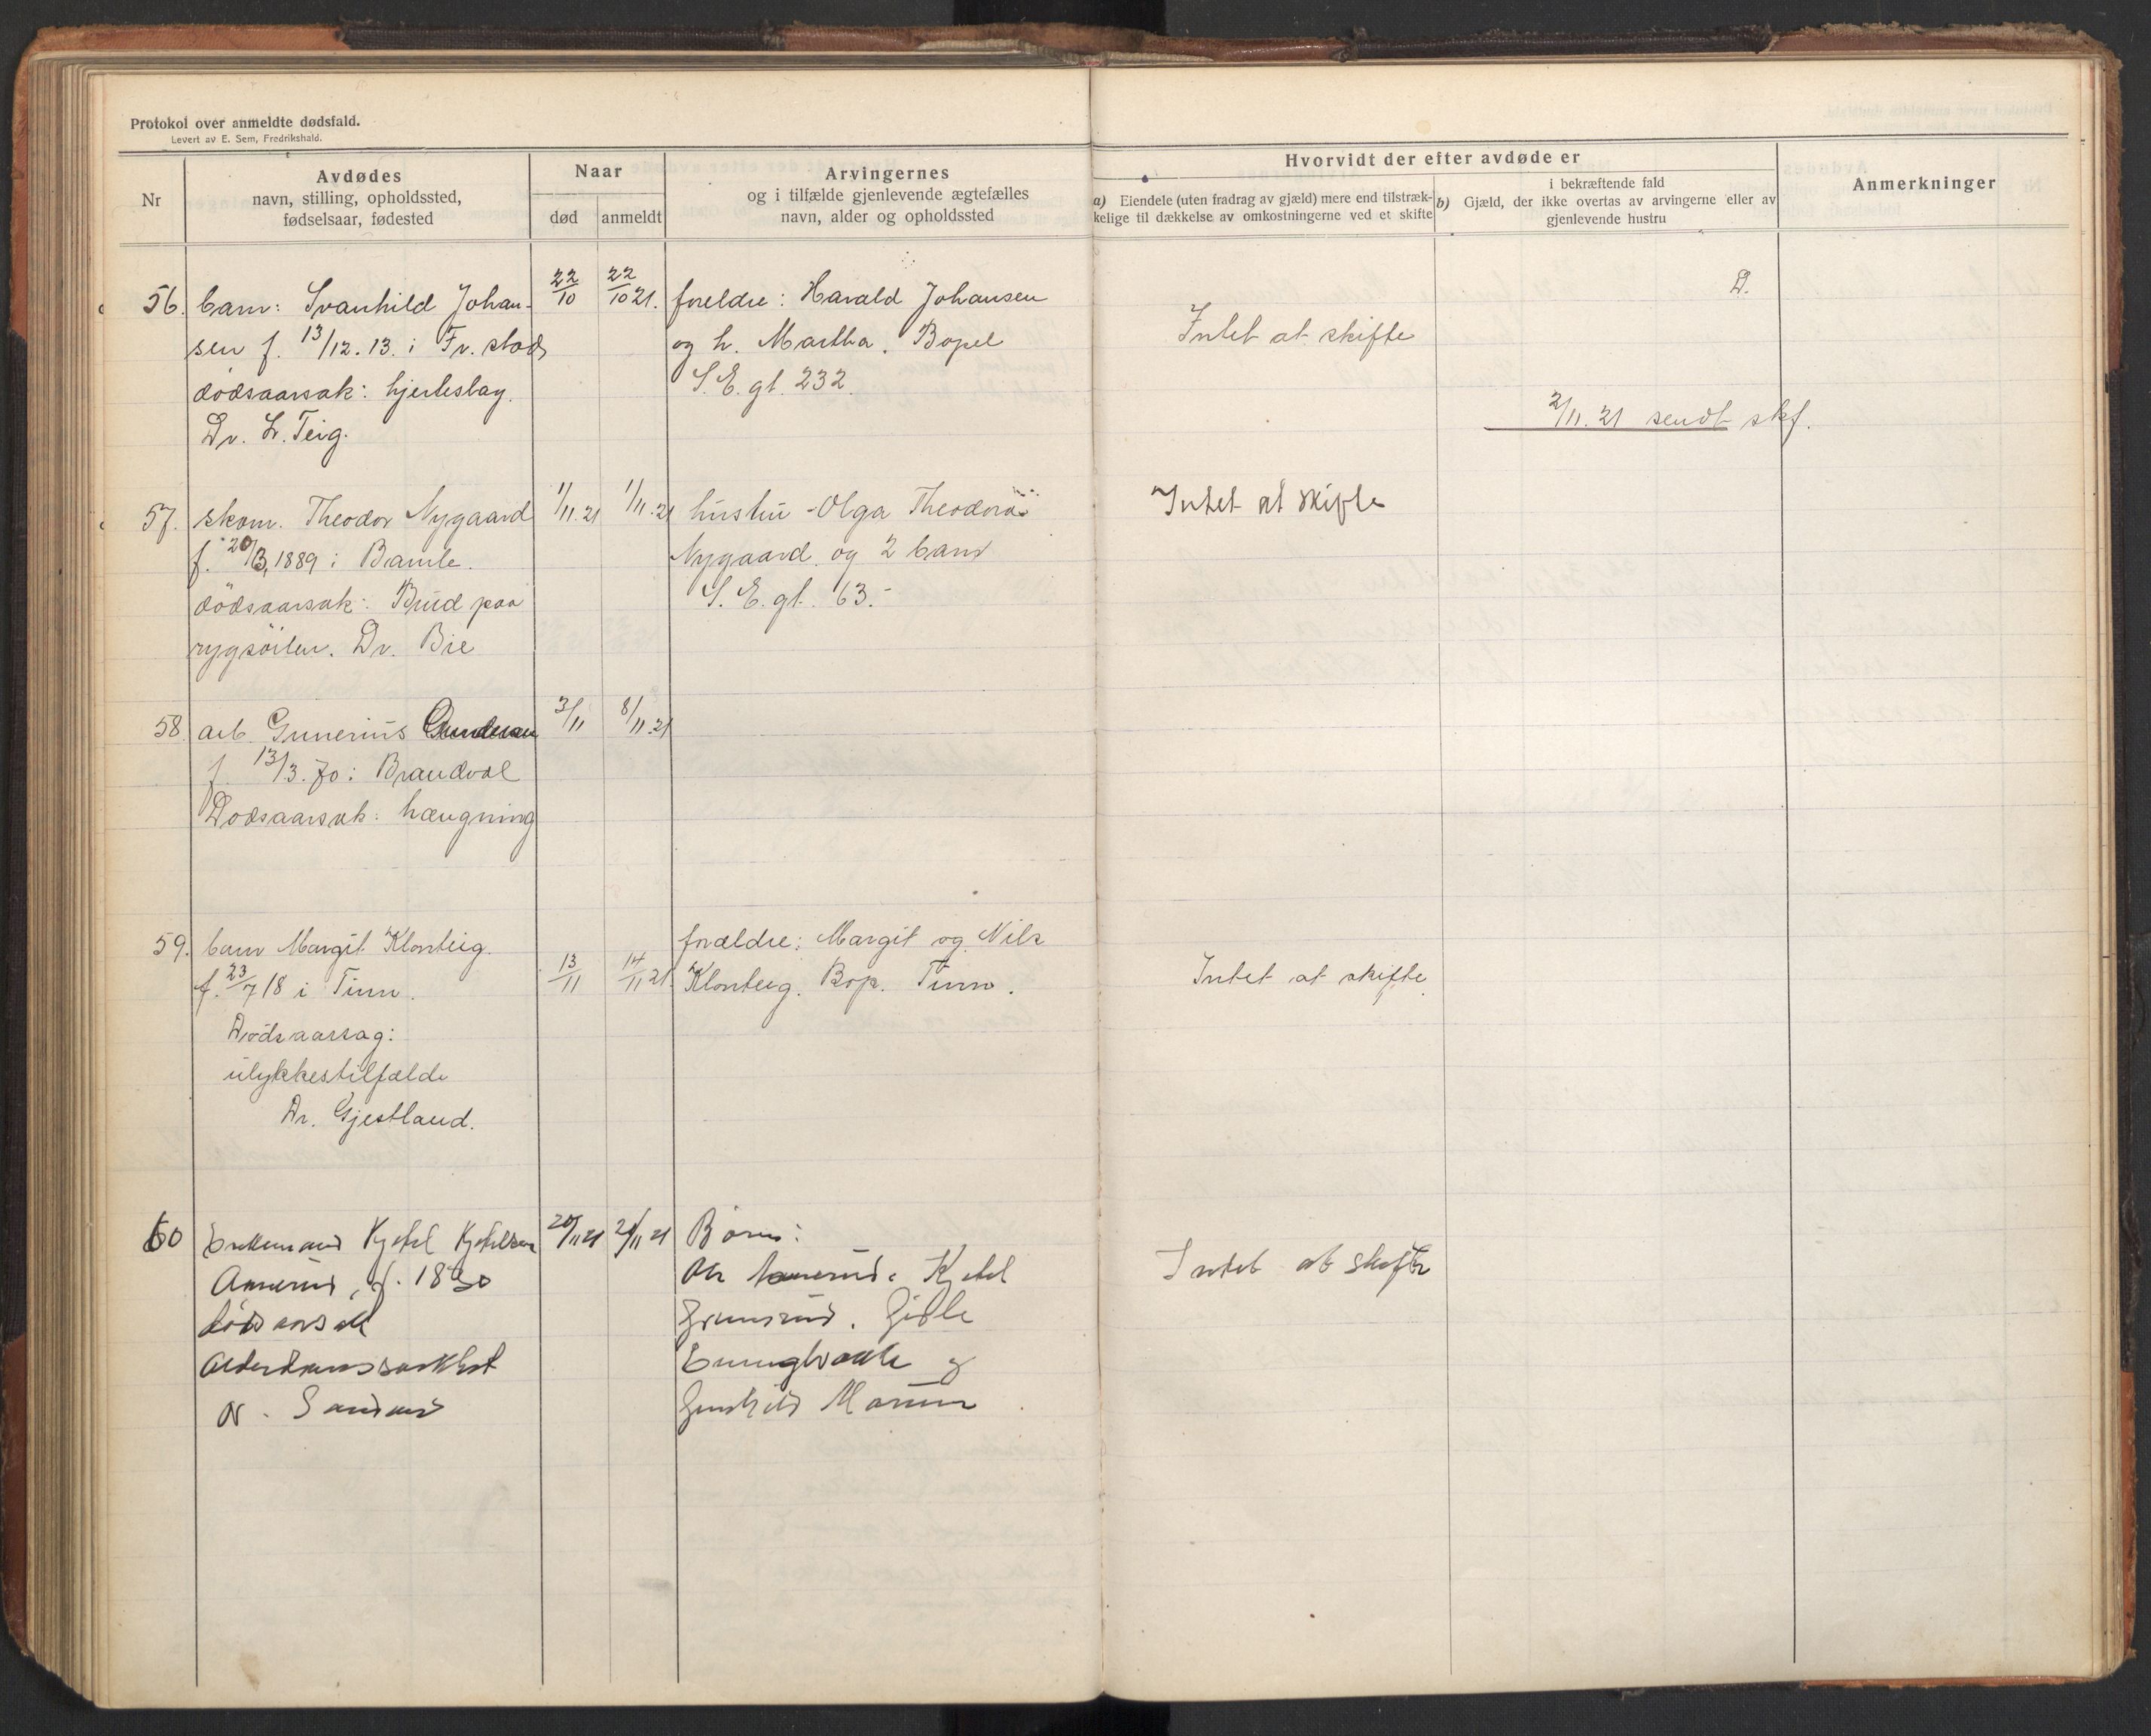 Protokol over anmeldte dødsfald.
Levert av E. Sem, Fredrikshald.
Nr
Avdødes
navn, stilling, opholdssted,
fødselsaar, fødested
Naar
død
anmeldt
Arvingernes
og i tilfælde gjenlevende ægtefælles
navn, alder og opholdssted
Hvorvidt der efter avdøde er
a) Eiendele (uten fradrag av gjæld) mere end tilstræk-
kelige til dækkelse av omkostningerne ved et skifte
b) i bekræftende fald
Gjæld, der ikke overtas av arvingerne eller av
gjenlevende hustru
Anmerkninger
56. barn: Svanhild Johan-
sen f. 13/12.13. i Fr. stad
dödsaarsak: hjerteslag.
Dr. L. Teig.
22/10
22/10 21.
foreldre: Harald Johansen
og h. Martha. Bopel
S.E. gt. 232.
Intet at skifte
D.
2/11.21 sendt skf.
57. skom. Theodor Nygaard
f. 20/3, 1889 i Bamle.
dödsaarsak: Brud paa
rygsöilen. Dr. Bie
1/11.21
1/11.21
hustru Olga Theodora
Nygaard og 2 barn
S.E. gt. 63.-
Intet at skifte
58. arb. Gunerius Gundersen
f. 13/3.70 i Brandval
Dodsaarsak: hængning
3/11
8/11.21
59. barn Margit Klonteig.
f. 23/7 18 i Tinn.
Dødsaarsag:
ulykkestilfælde
Dr. Gjestland.
13/11
14/11 21.
forældre: Margit og Nils
Klonteig. Bop. Tinn.
Intet at skifte.
60 Enkemand Kjetel Kjetilsen
f. 1830
dødsaarsak
Alderdomssvakhet
20/11 21
21/11 21
Børn:
Kjetel
og
Gunhild
Intet at skifte